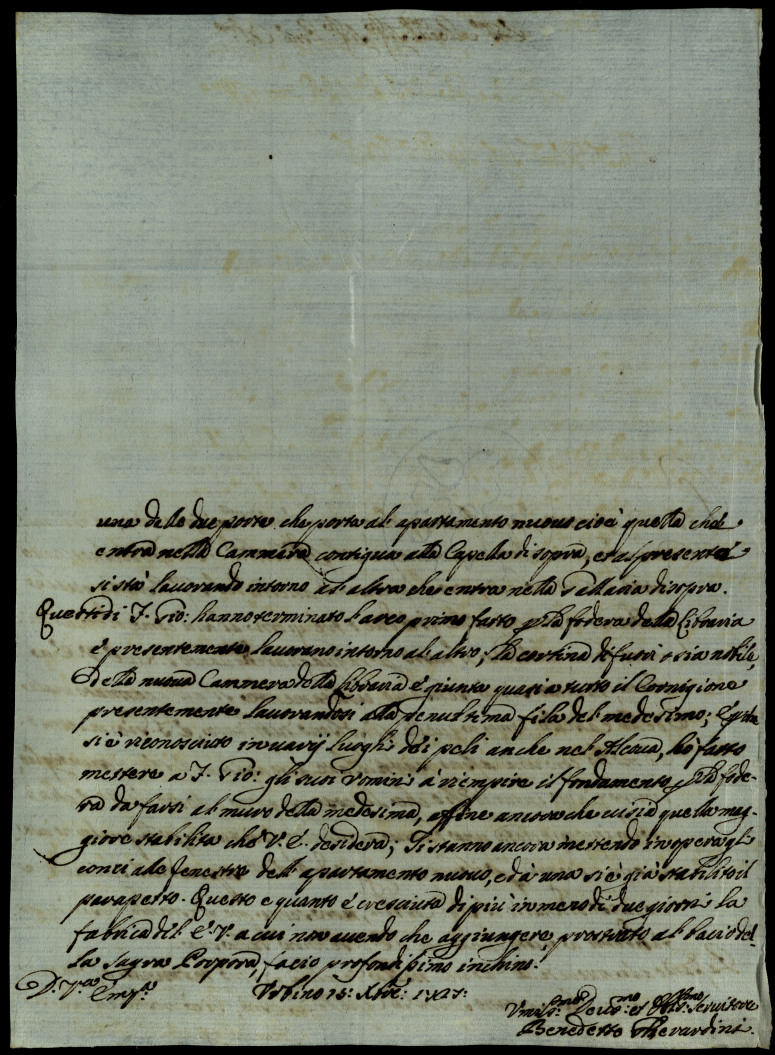 una delle due porte che porta al apartamento nuovo cioè quella che
entra nella Cammara contigua alla Capella di sopra, et al presente
si stà lavorando intorno al altra che entra nella Gallaria di sopra.
Questi di F. Gio: hanno terminato l'arco primo fatto p la fodera della Libraria
è presentemente lavorano intorno al altro; la cortina di fuori o sia nobile,
della nuova Cammera della Libraria è giunta quasi a tutto il Cornigione
presentemente lavorandosi alla penultima fila del medesimo; È
si è riconosciuto in varij luoghi dei peli anche nel hò fatto
mettere a F. Gio: gli suoi Vomini à riempire il fondamento p la fode-
ra da farsi al muro della medesima, affine ancora che quella mag-
giore stabilita che V. E. desidera; Si stanno ancora mettendo in opera gli
conci alle fenestre dell apartamento nuovo, ed à una si è già stabilito il
parapetto. Questo e quanto è cresciuta di più in meno di due giorni la
fabrica di V. E. a cui non avendo che aggiungere, prostrato al bacio del-
la Sagra Porpora, facio profondissimo inchino.
D. V.ra Em.za Urbino 15: Xbre:
Umiliss.mo Devot.mo et Obblig.mo Servitore
Benedetto Gherardini